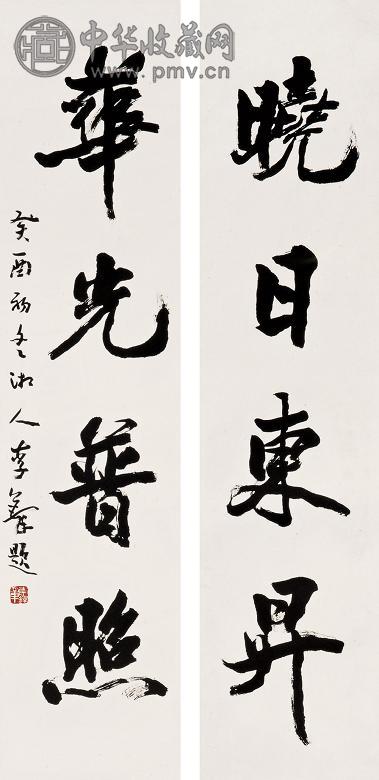 中华收藏网
www.pmv.cn
曉日東昇
華光普照
癸酉初冬湘人李鐸題